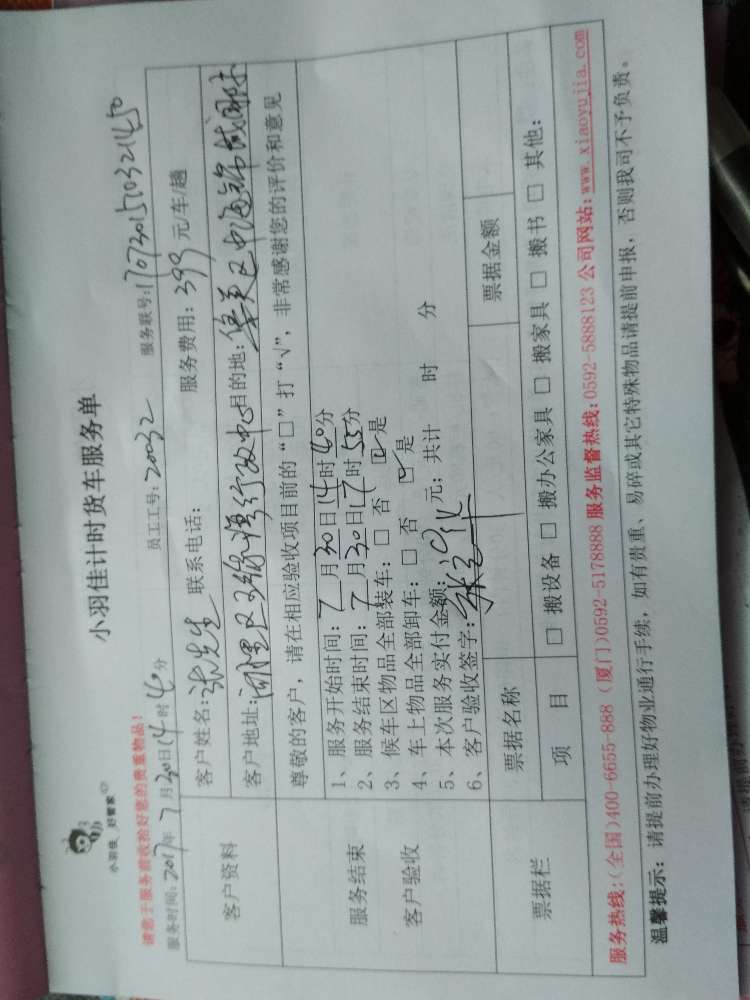 小羽佳 好管家
小羽佳计时货车服务单
请您于服务前收拾好您的贵重物品！
服务时间：2017年7月30日14时40分 员工工号：20032 服务联号：1707301510321450
客户资料
客户姓名：张先生 联系电话： 服务费用：399元/车/趟
客户地址：湖里区 行政中心 目的地：集美区中海锦城国际
服务结束
客户验收
尊敬的客户，请在相应验收项目前的“□”打“√”，非常感谢您的评价和意见
1、服务开始时间：7月30日14时40分
2、服务结束时间：7月30日17时55分
3、候车区物品全部装车：□ 否 ☑是
4、车上物品全部卸车：□ 否 ☑是
5、本次服务实付金额： 元；共计 时 分
6、客户验收签字：
票据栏
票据名称 票据金额
项 目 □ 搬设备 □ 搬办公家具 □ 搬家具 □ 搬书 □ 其他：
服务热线：(全国)400-6655-888 (厦门)0592-5178888 服务监督热线：0592-5888123 公司网站：www.xiaoyujia.com
温馨提示：请提前办理好物业通行手续，如有贵重、易碎或其它特殊物品请提前申报，否则我司不予负责。